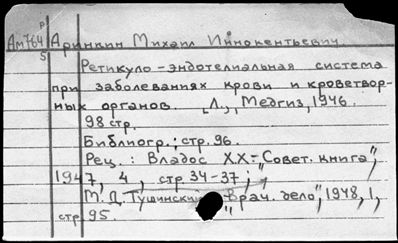 Ам764 Аринкин Михаил Иннокентьевич.
Р
5
Ретикуло-эндотелиальная система
при заболеваниях крови и кроветвор-
ных органов. [Л.], Медгиз, 1946.
98 стр.
Библиогр.: стр. 96.
Рец.: Владос Х.Х.- "Совет. книга",
1947, 4, стр 34-37;
М. Д. Тушинский "Врач. дело", 1948, 1,
стр 95.